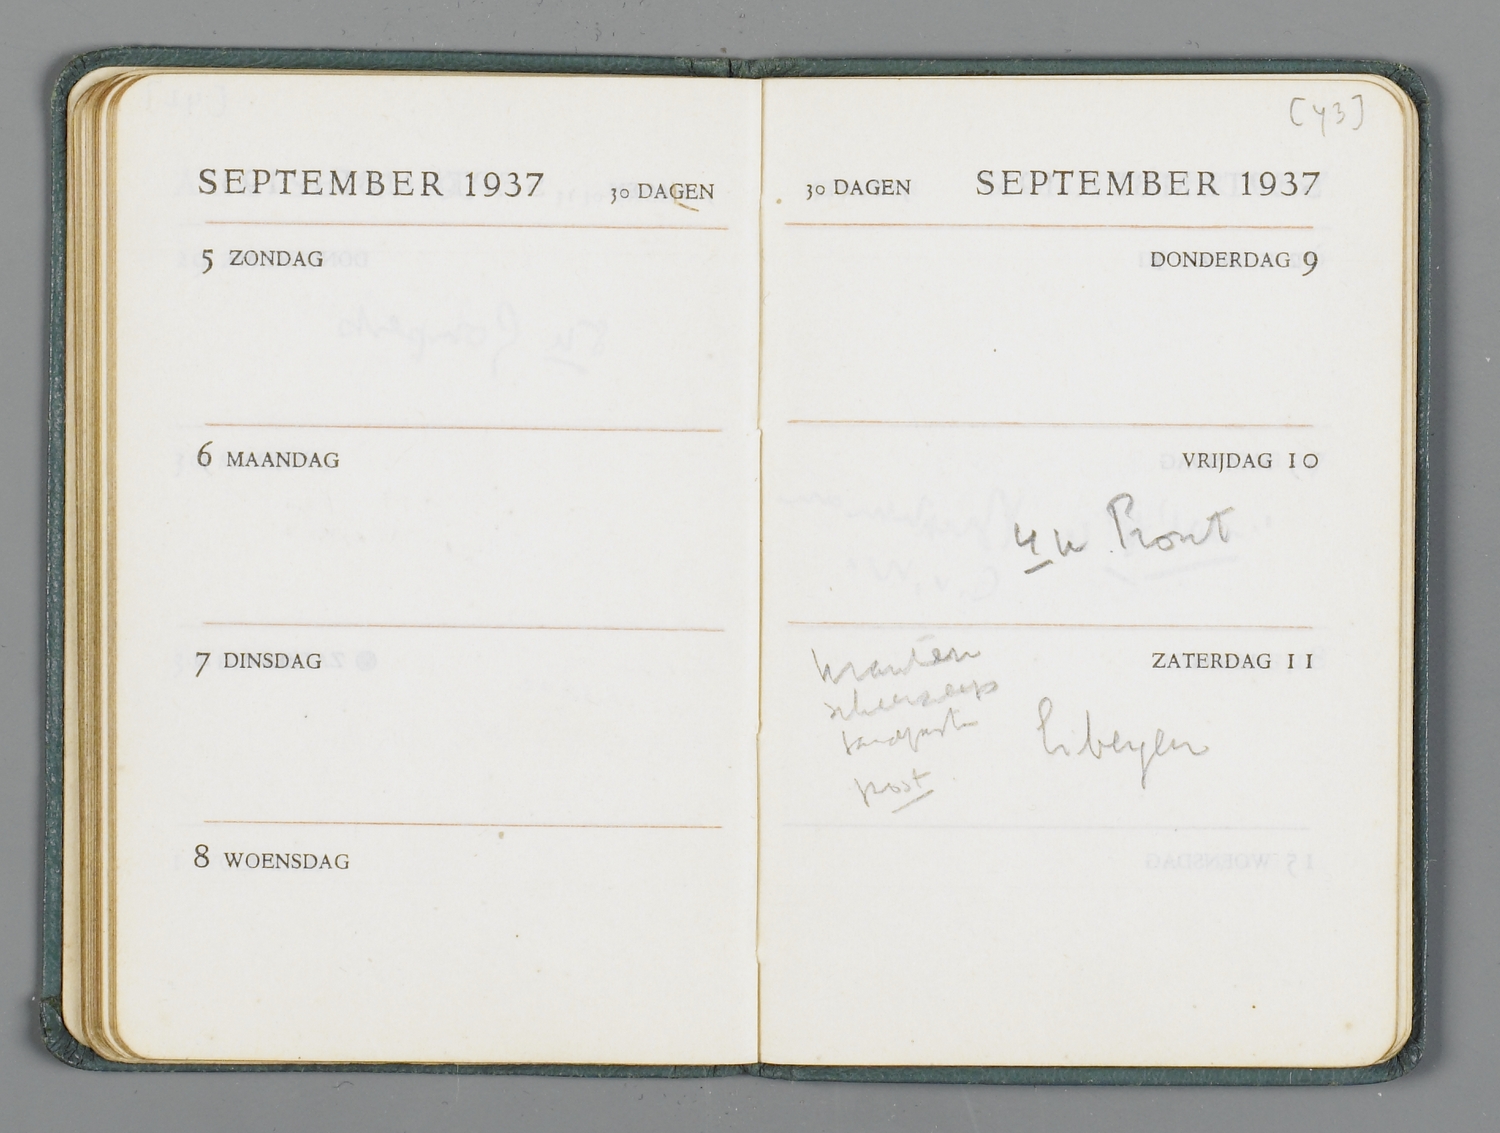 SEPTEMBER 1937 30 DAGEN
5 ZONDAG
6 MAANDAG
7 DINSDAG
8 WOENSDAG
[43]
30 DAGEN SEPTEMBER 1937
DONDERDAG 9
VRIJDAG 10
4 u
ZATERDAG 11
kranten
scheerzeep
tandpasta
post